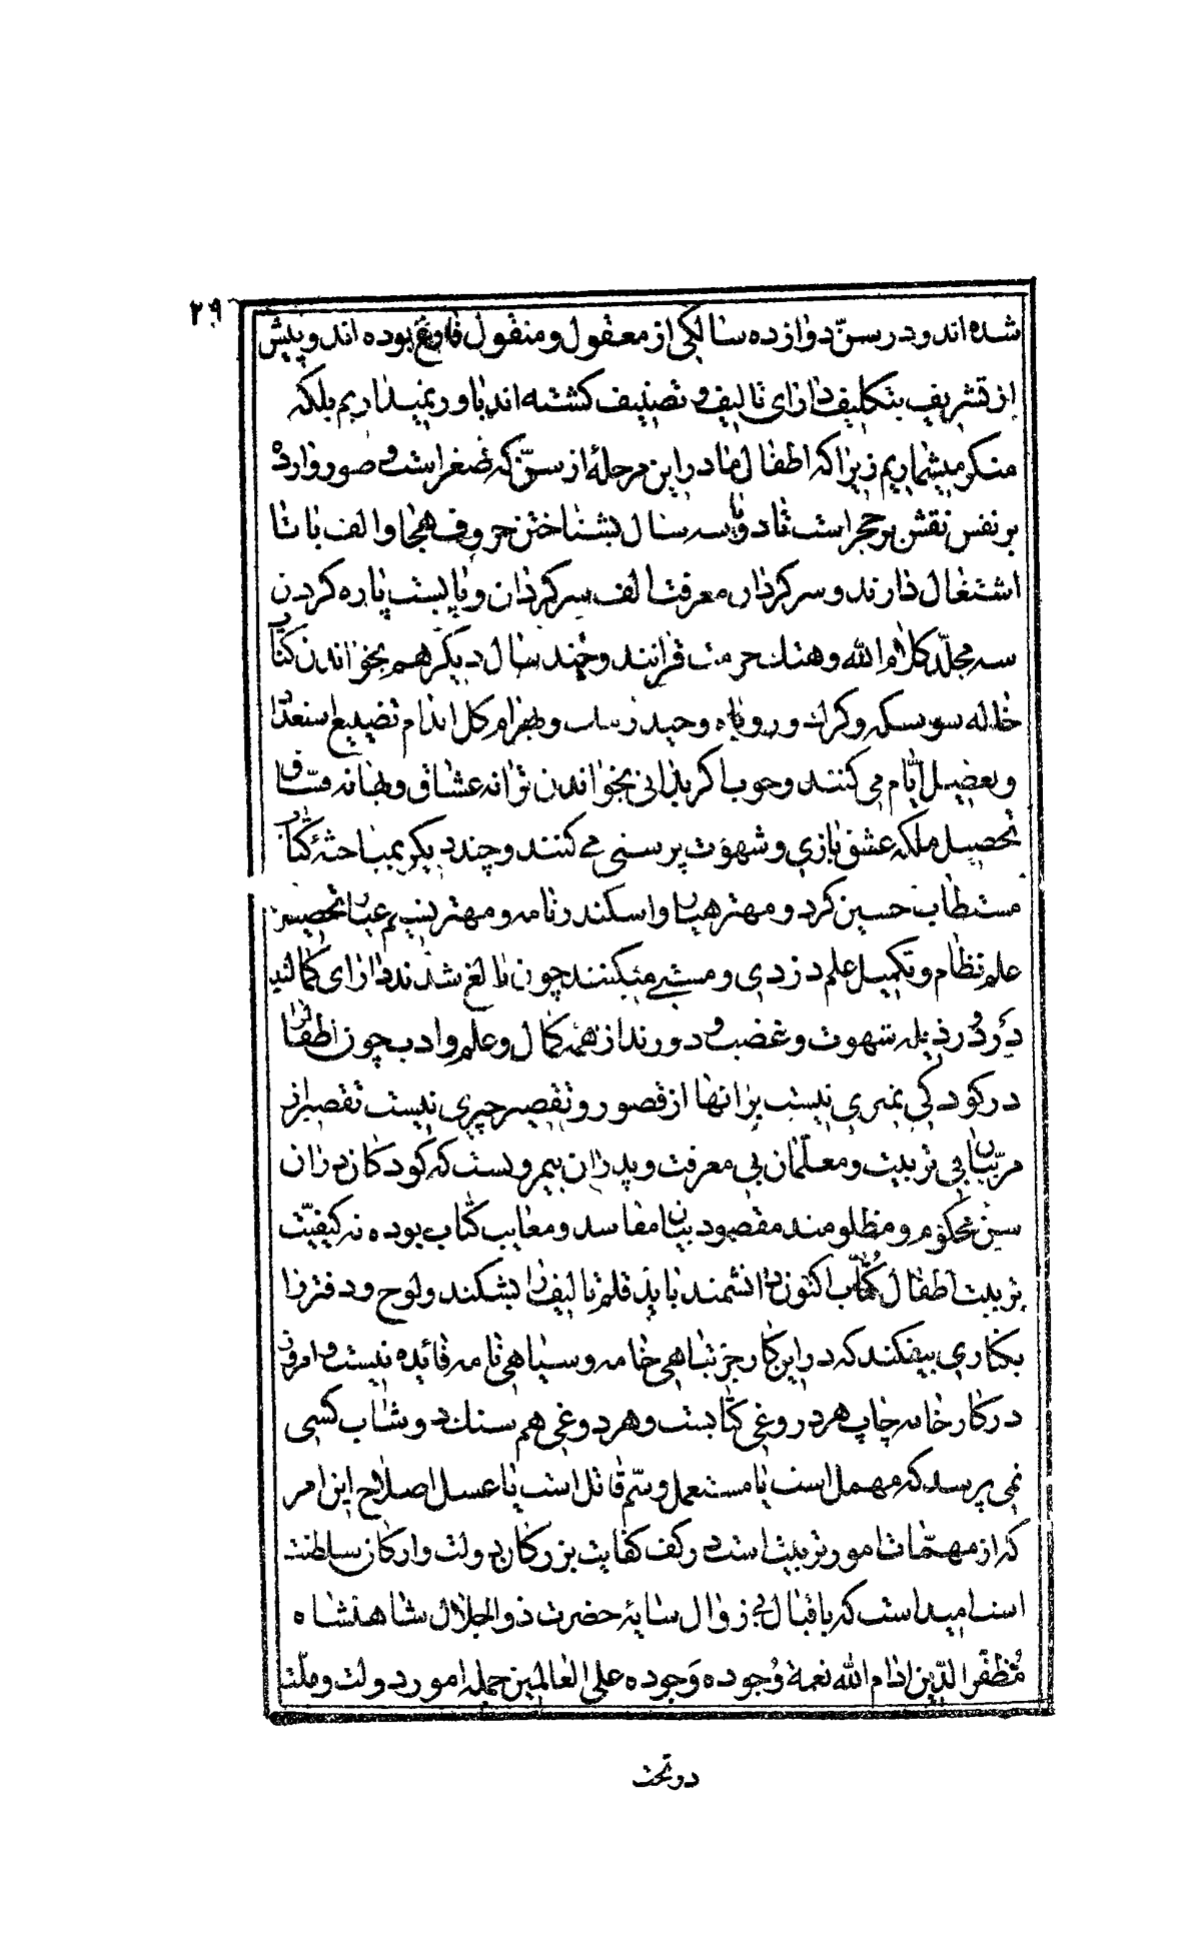 ۲۹
شده اند و در سنّ دوازده سالکی از معقول و منقول فارغ بوده اند و پیش
از تشریف بتکلیف دارای تالیف و تصنیف کشته اند باور نمیداریم بلکه
منکر میشماریم زیرا که اطفال ما در این مرحلهٔ از سنّ که صغر است و صور وارده
بر نفس نقش بر حجر است تا دو یا سه سال بشناختن حروف هجا و الف با تا
اشتغال دارند و سر کردان معرفت الف سر کردان و پا بست پاره کردن
سه مجلّد کلام الله و هتك حرمت قرانند و چند سال دیکر هم بخواندن کتاب
خاله سوسکه و کرك و روباه و حیدر و بهرام کل اندام تضییع استعداد
و تعضیل ایّام می کنند و خوب اکر بدانی بخواندن ترانه عشاق و بهانه فسّاق
تحصیل ملکه عشق بازی و شهوت پرستی می کنند و چند دیکر بمباحثهٔ کتاب
مستطاب حسین کرد و مهتر و اسکندر نامه و مهتر نسیم عیار تحصیل
علم نظام و تکمیل علم دزدی و میکنند چون بالغ شدند دارای کمالند
در دو رذیله شهوت و غضب و دورند از همه کمال و علم و ادب چون اطفال را
در کودکی تمیزی نیست بر انها از قصور و تقصیر چیزی نیست تقصیر از
مربّیان بی تربیت و معلّمان بی معرفت و پدران بیمروبست که کودکان در ان
سنین محکوم و مظلومند مقصود بیان مفاسد و معایب کتاب بوده نه کیفیّت
تربیت اطفال کُتّاب اکنون دانشمند باید قلم تالیف را بشکند و لوح و دفتر را
بکناری بیفکند که در این کار جز تباهی خامه و سیاهی نامه فائده نیست و امروز
در کار خانه چاپ هر دروغی کتابست و هر دوغی هم سنك دوشاب کسی
نمی پرسد که مهمل است یا مستعمل و سّم قاتل است یا عسل اصلاح این امر
که از مهمّات امور تربیت است در کف کفایت بزرکان دولت و ارکان سلطنت
است امید است که باقبال بی زوال سایهٔ حضرت ذوالجلال شاهنشاه
مُظفّر الدّین ادام الله نعمة وُجوده وَجوده علی العالمین جمله امور دولت و ملّت
در تحت